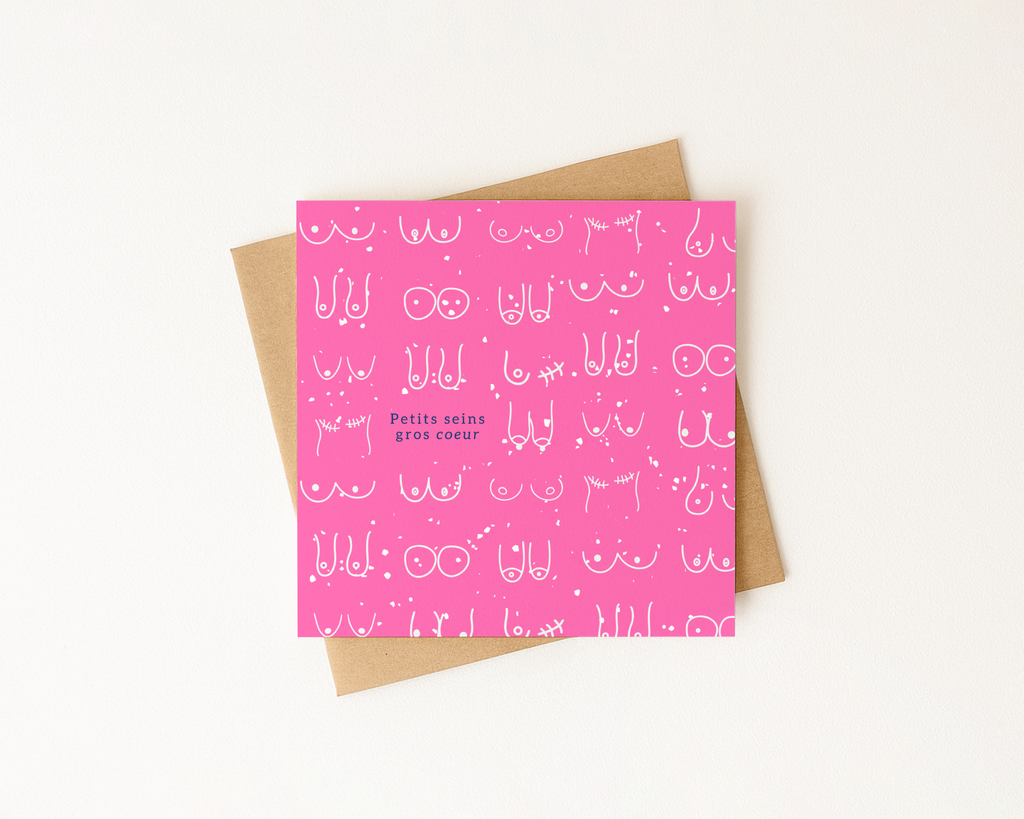 Petits seins
gros coeur